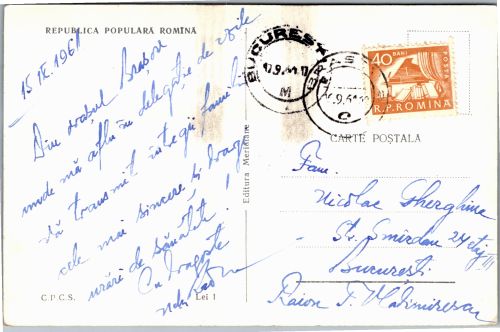 REPUBLICA POPULARĂ ROMÎNĂ
15.IX.1961
Din orașul Brașov
unde mă aflu în delegație de zile
vă transmit întregii familii
cele mai sincere și dragi
urări de sănătate!
Cu dragoste
C.P.C.S.
Lei 1
Editura Meridiane
BUCUREȘTI
17.9.61.17
M
40 BANI
POSTA
R.P.ROMINA
CARTE POȘTALĂ
Fam.
Nicolae Gherghine
Str. Smîrdan 24 etaj III
București
Raion T. Vladimirescu